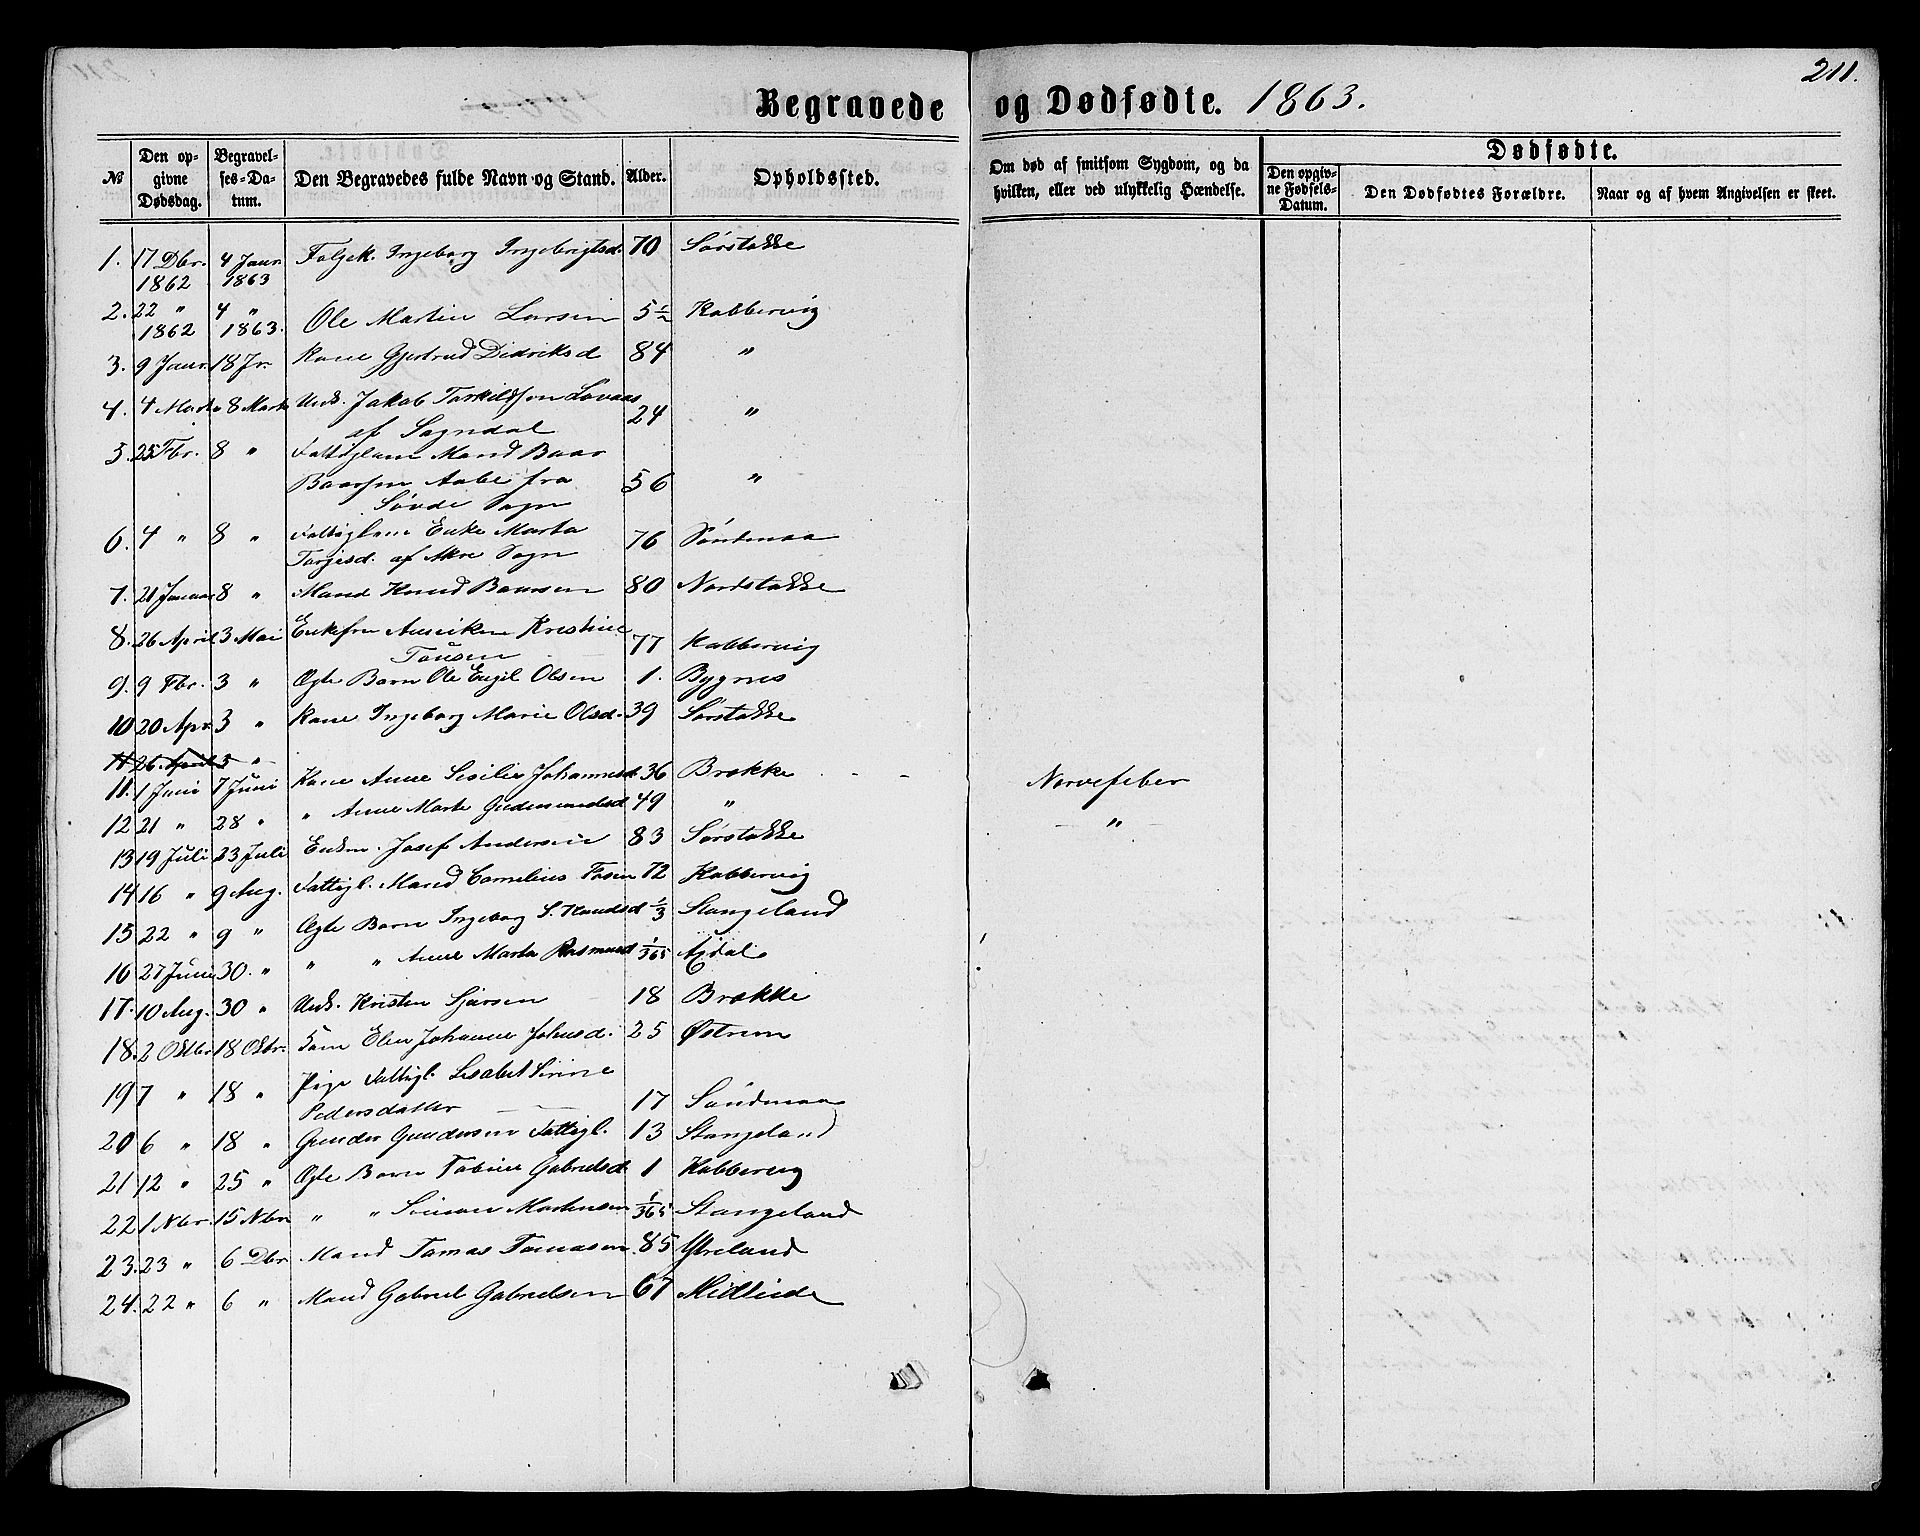 211.
Begravede og Dødfødte. 1863.
№ Den opgivne Dødsdag. Begravelses-Datum. Den Begravedes fulde Navn og Stand. Alder. Opholdssted. Om død af smitsom Sygdom, og da hvilken, eller ved ulykkelig Hændelse. Dødfødte. Den opgivne Fødsels-Datum. Den Dødfødtes Forældre. Naar og af hvem Angivelsen er skeet.
1. 17 Dbr. 1862 4 Janr. 1863 Folgek. Ingeborg Ingebrigtsd. 70 Sørstokke
2. 22 " 1862 4 " 1863. Ole Martin Larsen 5½ Kobbervig
3. 9 Janr. 18 Jr. Kone Gjertrud Didriksd 84 "
4. 4 Marts 8 Marts Unk. Jakob Torkildsen Lovaas
af Sogndal 24 "
5. 25 Fbr. 8 " Fattiglem Mand Baar
Baarsen Aabe fra 56 "
Søvde Sogn
6. 4 " 8 " Fattiglem Enke Marta
Torgisd. af Akre Sogn 76
7. 21 Januar 8 " Mand Knud Baarsen 80 Nordstokke
8. 26 April 3 Mai Enkefru Anniken Kristine
77 Kobbervig
9. 9 Fbr. 3 " Ægte Barn Ole Engil Olsen 1. Bygnes
10 20 Apr. 3 " Kone Ingeborg Marie Olsd. 39 Sørstokke
11 26 April 3 "
11. 1 Juni 7 Juni Kone Anne Sesilie Johannesd. 36 Brekke Nervefeber
12 21 " 28 " " Anne Marte Gudmundsd 49 " "
13 19 Juli 23 Juli Enkm. Josef Andersen 83 Sørstokke
14 16 " 9 Aug. Fattigl. Mand Cornelius Fosen 72 Kobbervig
15 22 " 9 " Ægte Barn Ingeborg S. Knudsd 1/3 Stangeland
16 27 Juni 30. " " " Anne Marta Rasmusd 1/365
17. 10 Aug. 30 " Unk. Kristen Sjursen 18 Brekke
18. 2 Oktbr 18 Oktbr. Elen Johanne Johnsd. 25 Østrem
19 7 " 18 " Pige Fattigl. Lisabet Serine
Pedersdatter 17 Søndmaa
20 6 " 18 " Gunder Gundersen Fattigl. 13 Stangeland
21 12 " 25 " Ægte Barn Tobine Gabrielsd. 1 Kobbervig
22 1 Nbr. 15 Nbr " " Simon Mortensen 1/365 Stangeland
23. 23 " 6 Dbr Mand Tomas Tomasen 85 Ytreland
24. 22 " 6 " Mand Gabriel Gabrielsen 67 Midtinde